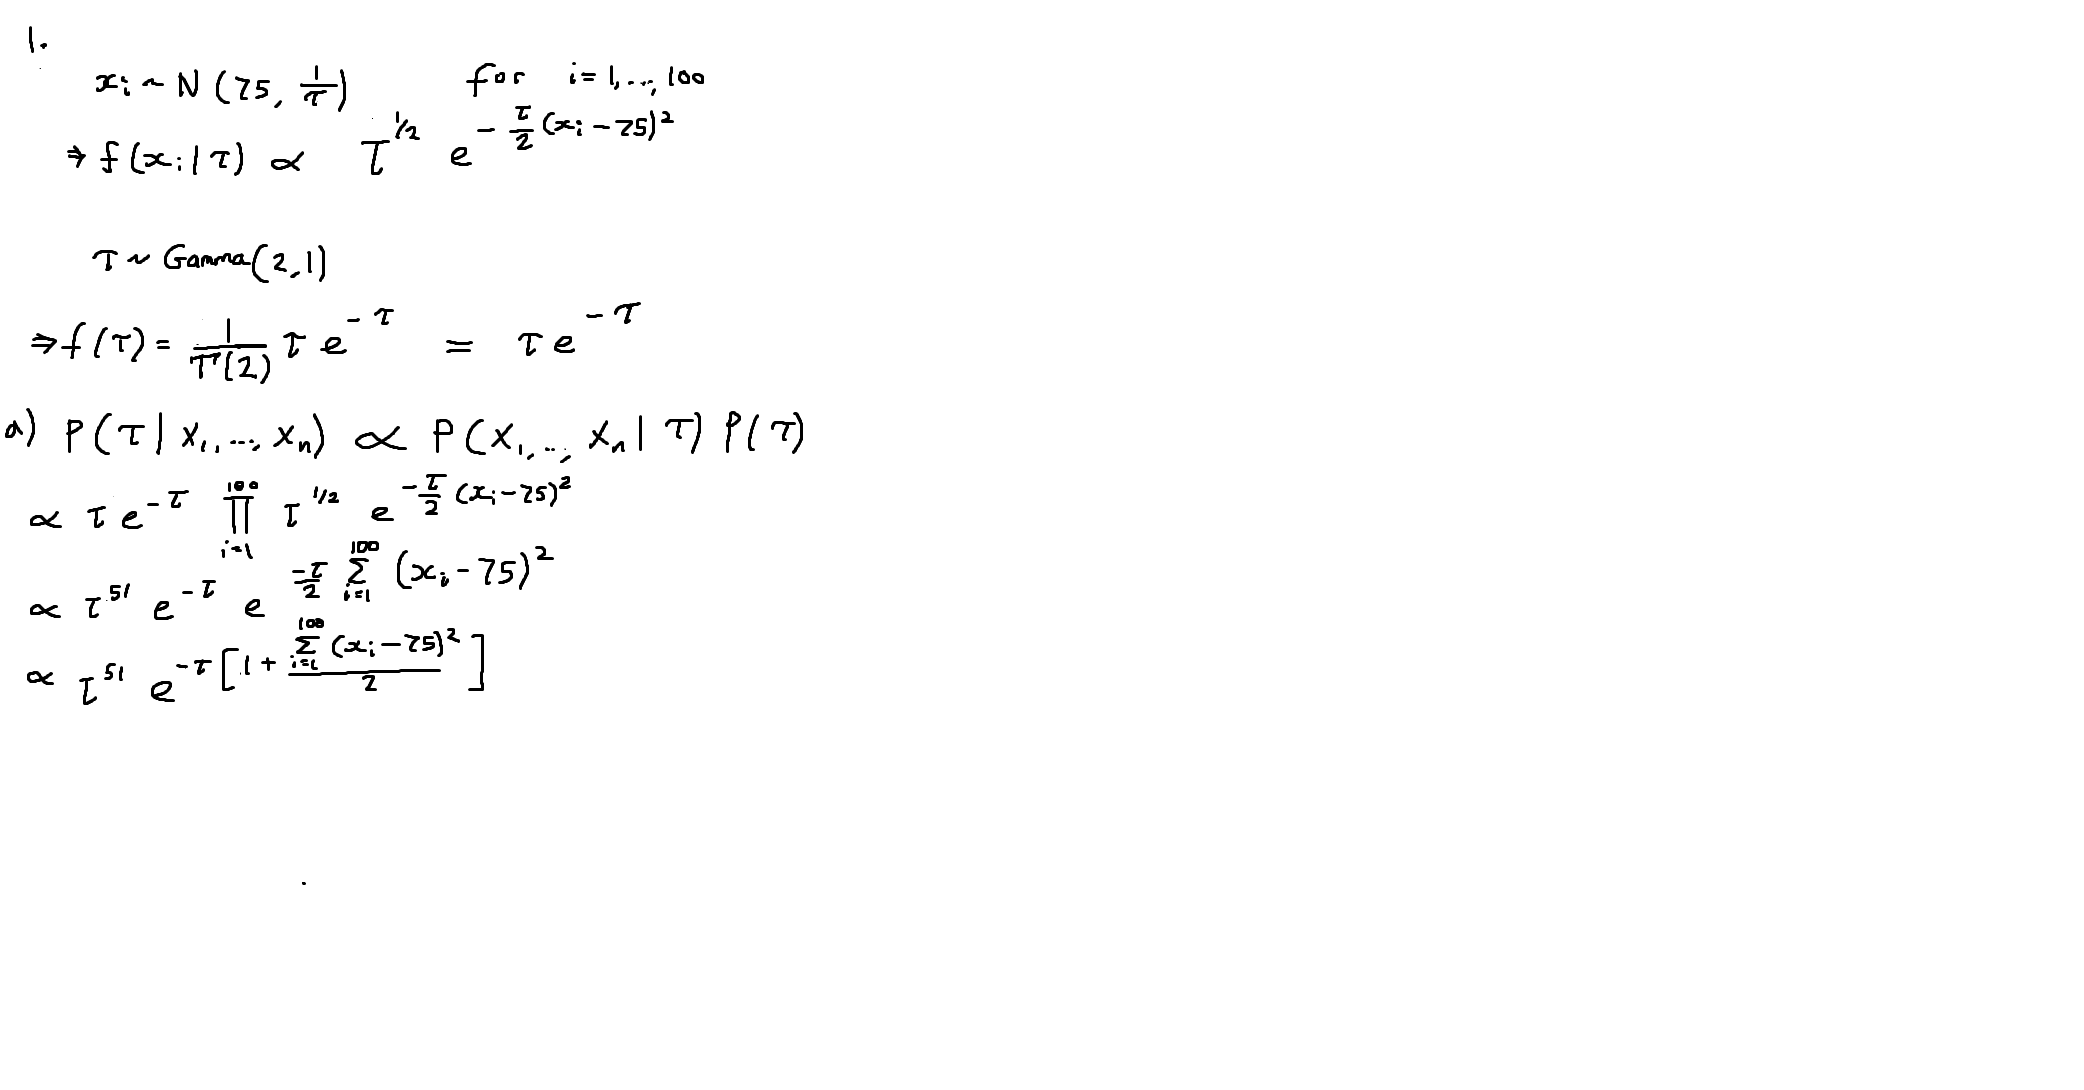 1.
x_i ~ N(75, 1/τ) for i = 1, ..., 100
⇒ f(x_i | τ) ∝ τ^{1/2} e^{-τ/2 (x_i - 75)^2}
τ ~ Gamma(2,1)
⇒ f(τ) = 1/Γ(2) τ e^{-τ} = τ e^{-τ}
a) P(τ | x_1, ..., x_n) ∝ P(x_1, ..., x_n | τ) P(τ)
∝ τ e^{-τ} ∏_{i=1}^{100} τ^{1/2} e^{-τ/2 (x_i - 75)^2}
∝ τ^{51} e^{-τ} e^{-τ/2 ∑_{i=1}^{100} (x_i - 75)^2}
∝ τ^{51} e^{-τ [1 + ∑_{i=1}^{100} (x_i - 75)^2 / 2]}